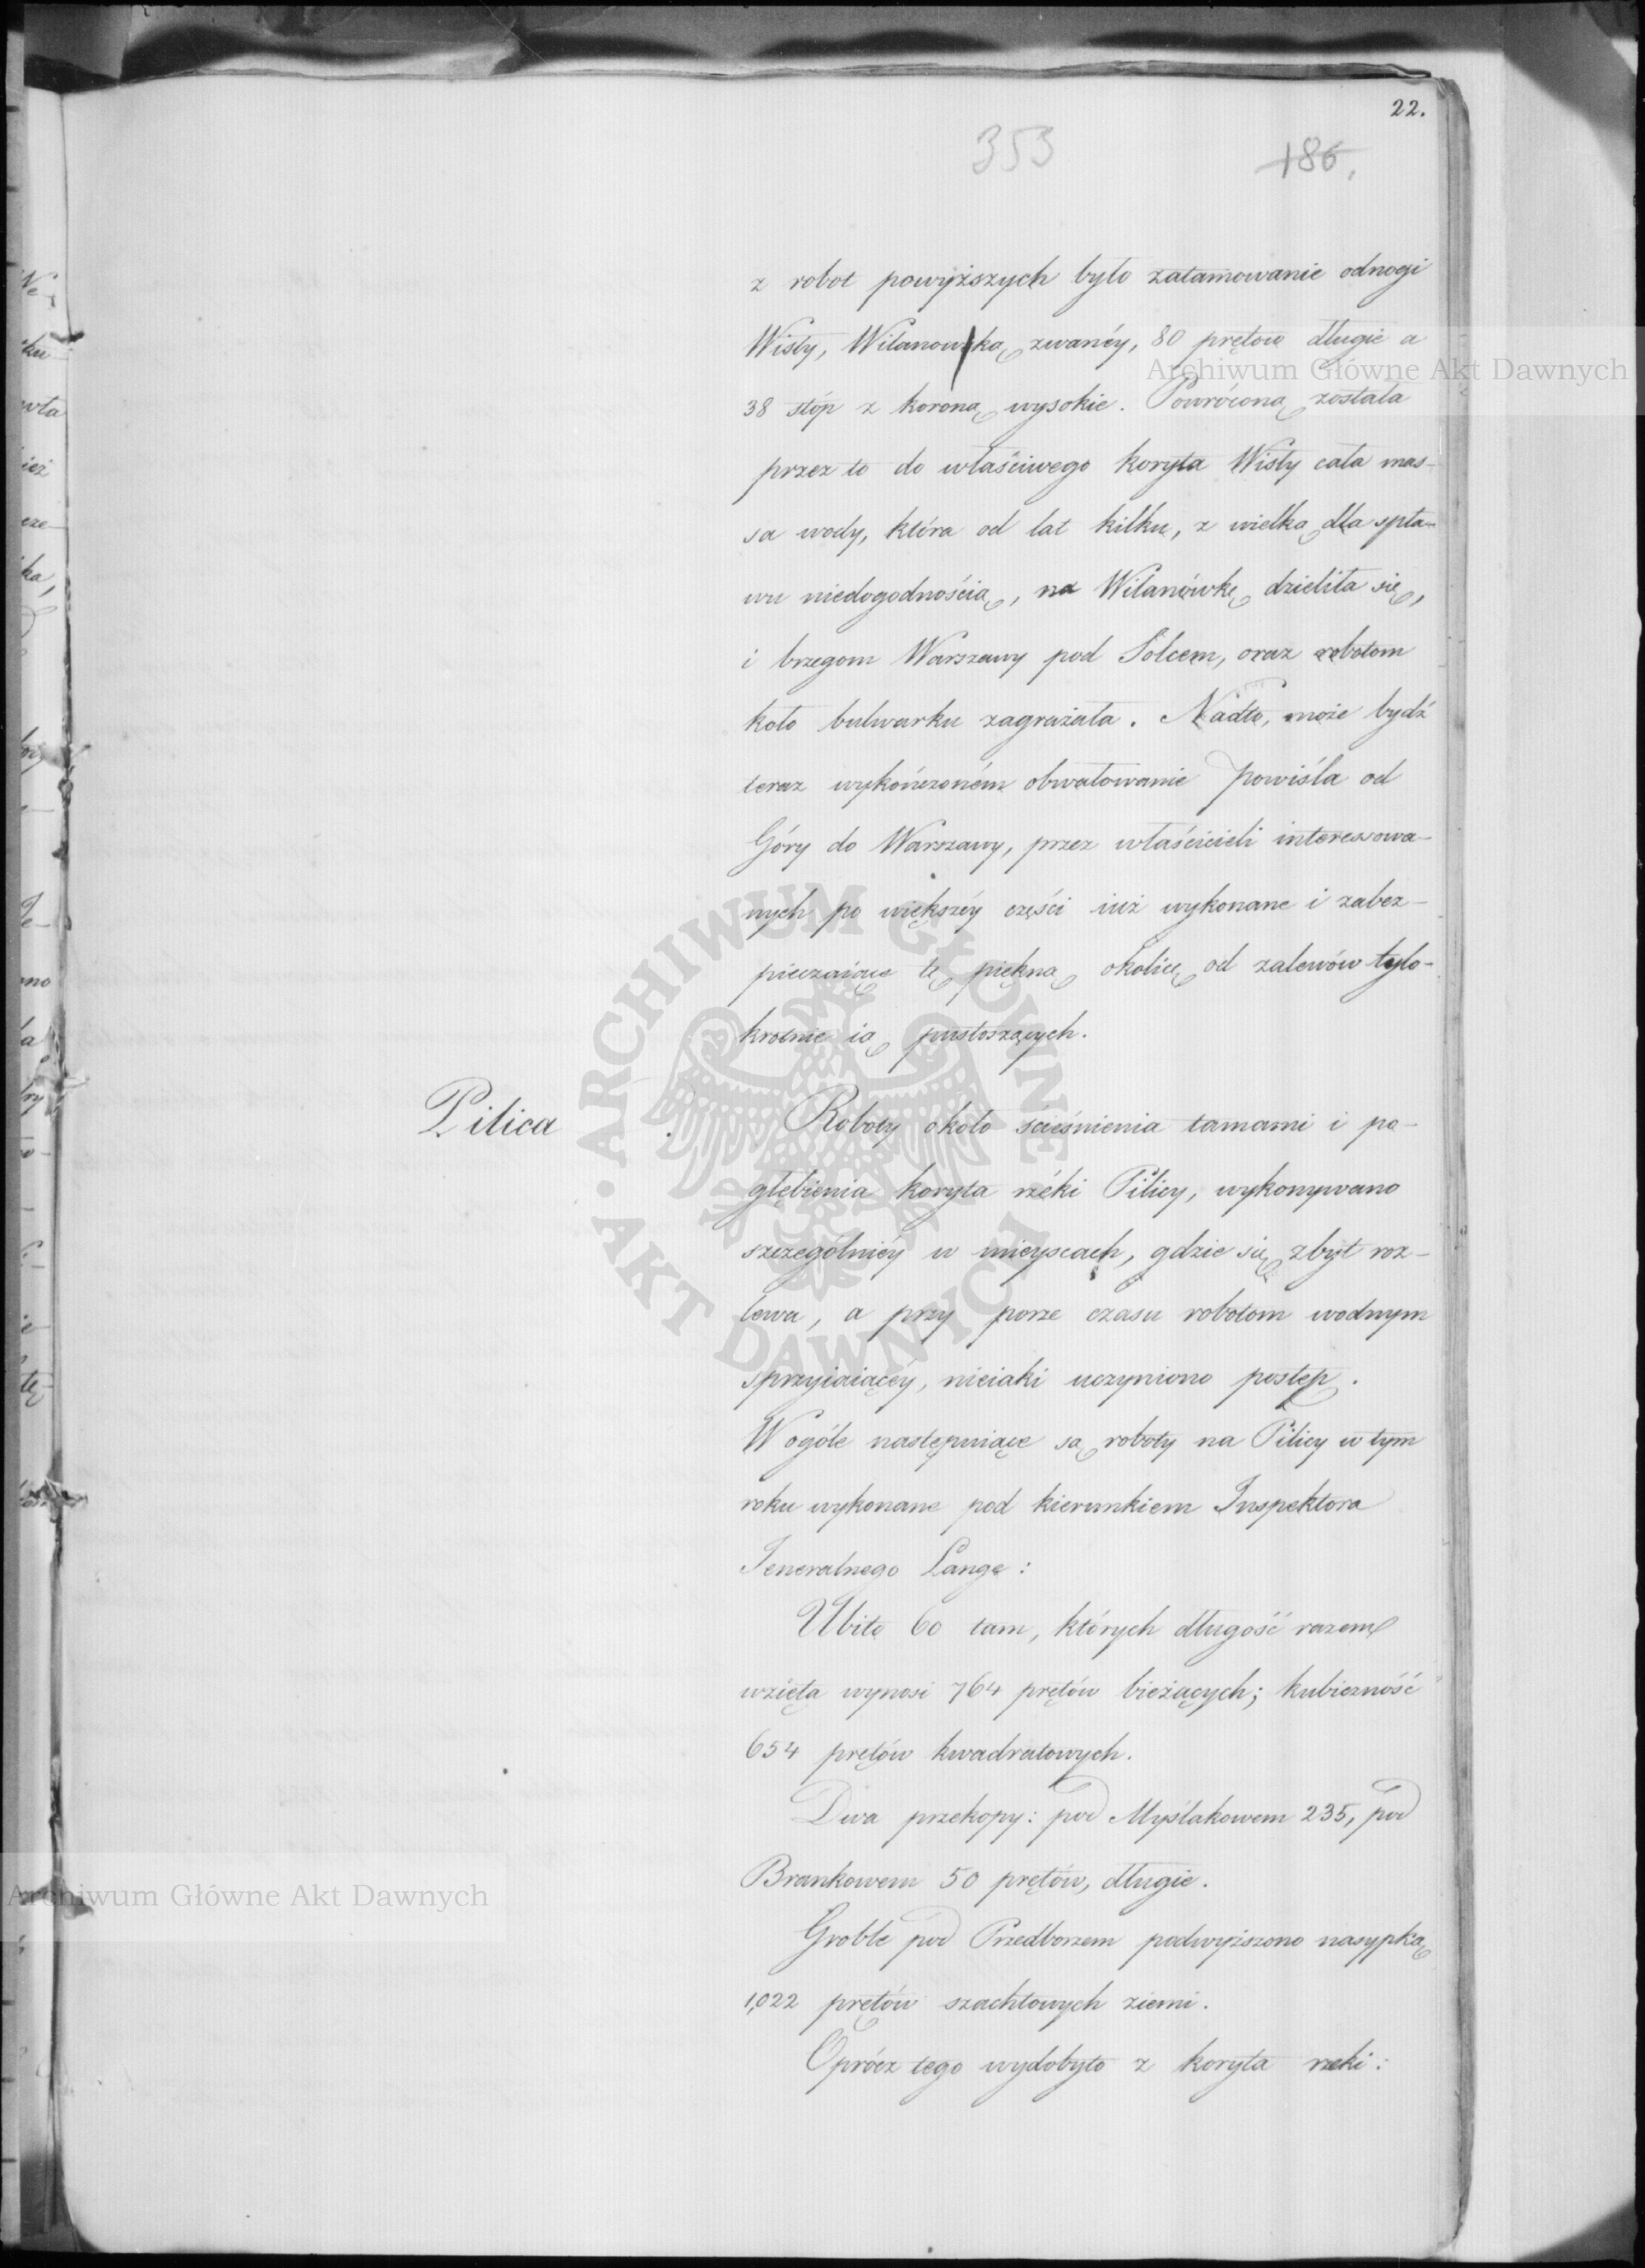 22.
353
186,
z robot powyższych było zatamowanie odnogi
Wisły, Wilanowską zwanéy, 80 prętow długie a
38 stóp z koroną wysokie. Powróconą została
przez to do właściwego koryta Wisły cała mas-
sa wody, która od lat kilku, z wielką dla spła-
wu niedogodnością, na Wilanówkę dzieliła się,
i brzegom Warszawy pod Solcem, oraz robotom
koło bulwarku zagrażała. Nadto, może bydź
teraz wykończoném obwałowanie Powiśla od
Góry do Warszawy, przez właścicieli interessowa-
nych po większéy części iuż wykonane i zabez-
pieczaiące tę piękną okolicę od zalewów tylo-
krotnie ią pustoszących.
Pilica
Roboty około ścieśnienia tamami i po-
głębienia koryta rzéki Pilicy, wykonywano
szczególniéy w mieyscach, gdzie się zbyt roz-
lewa, a przy porze czasu robotom wodnym
sprzyiaiącéy, nieiaki uczyniono postęp.
W ogóle następuiące są roboty na Pilicy w tym
roku wykonane pod kierunkiem Inspektora
Jeneralnego Lange:
Ubito 60 tam, których długość razem
wzięta wynosi 764 prętów bieżących; kubiczność
654 prętów kwadratowych.
Dwa przekopy: pod Myślakowem 235, pod
Brankowem 50 prętów, długie.
Groble pod Przedborzem podwyższono nasypką
1,022 prętów szachtowych ziemi.
Oprócz tego wydobyto z koryta rzeki:
Archiwum Główne Akt Dawnych
ARCHIWUM GŁÓWNE
AKT DAWNYCH
Archiwum Główne Akt Dawnych